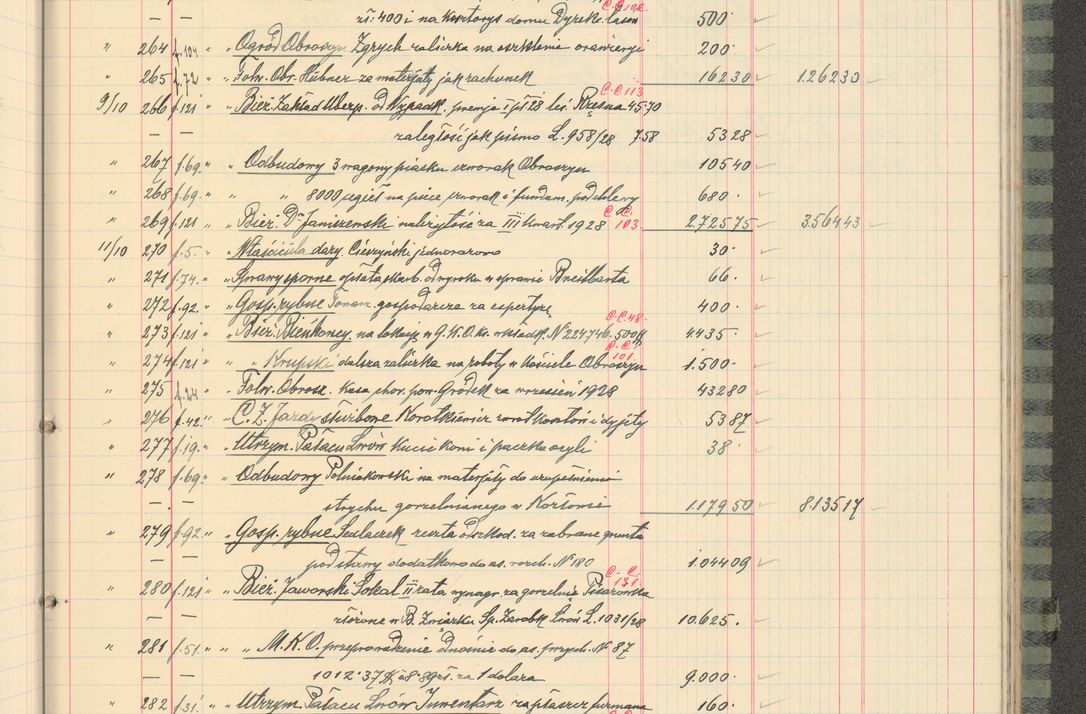 C.C. 192.
— — zł. 400 i na kosztorys domu Dyrek. lasów 500·
" 264 f. 104 " " Ogród Obroszyn Zgrych zaliczka na oszklenie oranżeryi 200·
" 265 f. 72 " Folw. Obr. Hübner za materjały jak rachunek 162 30 1.262 30
C.C 113
9/10 266 f. 121 " Bież. Zakład Ubezp. od Wypadk. premja I pł 28 leś. Rzęsna 45·70
— zaległość jak pismo L. 958/28 7·58 53 28
" 267 f. 69. " " Odbudowy 3 wagony piasku Obroszyn 105 40
" 268 f. 69. " " " 8000 cegieł na piece i fundam. pod chlewy 680·
C. C. 103.
" 269 f. 121 " " Bież. Dr. należytość za III kwart. 1928 2.725 75 3.564 43
11/10 270 f. 5. " " Właściciela dary Cieszyński jednorazowo 30·
" 271 f. 74. " " Sprawy sporne opłata skarb. od wyroku w sprawie Breitbarta 66·
" 272 f. 92. " " Gosp. rybne gospodarcze za expertyzę 400·
C.C. 48.
" 273 f. 121 " Bież. Bieńkowcy na lokację w G.K.O. ks. wkładk. N° 224746. 500 44 35·
C. C. 101.
" 274 f. 121 " " " Krupski dalsza zaliczka na roboty w Kościele Obroszyn 1.500·
" 275 f. 24 " Folw. Obrosz. Kasa chor. pow. Gródek za wrzesień 1928 432 80
" 276 f. 42. " " C. Z. Jazdy służbowe Korotkiewicz zwrot kosztów i dyjety 53 87
" 277 f. 19. " " Utrzym. Pałacu Lwów kucie koni i paczka 38·
" 278 f. 69. " Odbudowy Polniakowski na materjały do uzupełnienia
— strychu gorzelnianego w Korłowie 1.179 50 8.135 17
" 279 f. 92 " " Gosp. rybne Sedlaczek renta odszkod. za zabrane grunta
— podstawy dodatkowo do as. rozch. N° 180 1.044 09
C. C. 131.
" 280 f. 121 " " Bież. Jaworski Sokal II rata wynagr. za gorzelnię Pisarzówka
— — złożone w B. Związku Sp. Zarobk Lwów L. 1031/28 10.625.
" 281 f. 51. " " " M. K. O. przeprowadzenie odnośnie do as. przych. N° 87
— 1012·37 $ a 8·89 zł. za 1 dolara 9.000·
" 282 f. 31. " " Utrzym. Pałacu Lwów Inwentarz za płaszcz furmana 160·